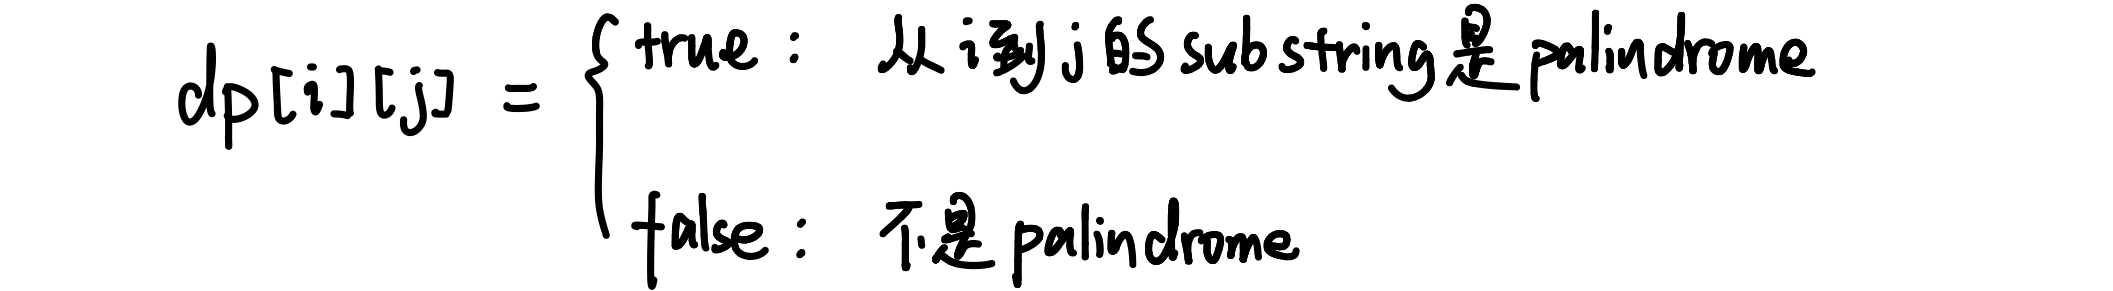 dp[i][j] = { true : 从 i 到 j 的 substring 是 palindrome
false : 不是 palindrome